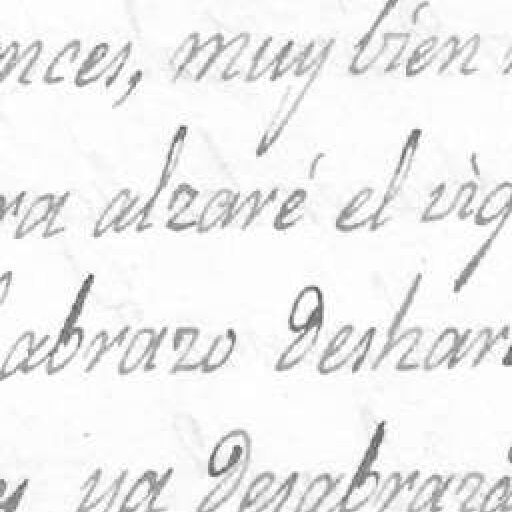 nces, muy bien
ra alzaré el vig
abrazo deshar
ya desabraza